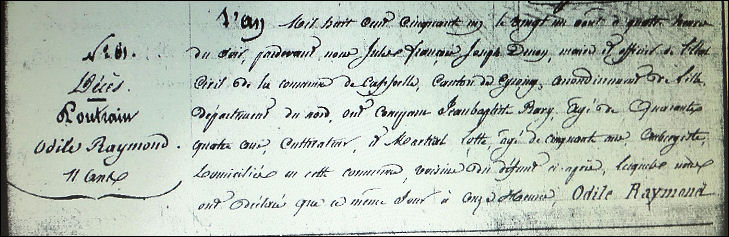 L'an Mil huit cent cinquante un, le vingt un août à quatre heures
du soir, pardevant nous Jules François Joseph, maire et officier de l'état
Civil de la commune de Cappelle, Canton de Cysoing, arrondissement de Lille
Département du nord, ont comparu Jeanbaptiste, âgé de Quarante
quatre ans, Cultivateur, et Martial Lotte, âgé de cinquante ans, aubergiste,
Domiciliés en cette commune, voisins du défunt ci après, lesquels nous
ont déclaré que ce même jour à onze Heures, Odile Raymond
N° 61.
Décès.
Poutrain
Odile Raymond.
11 ans